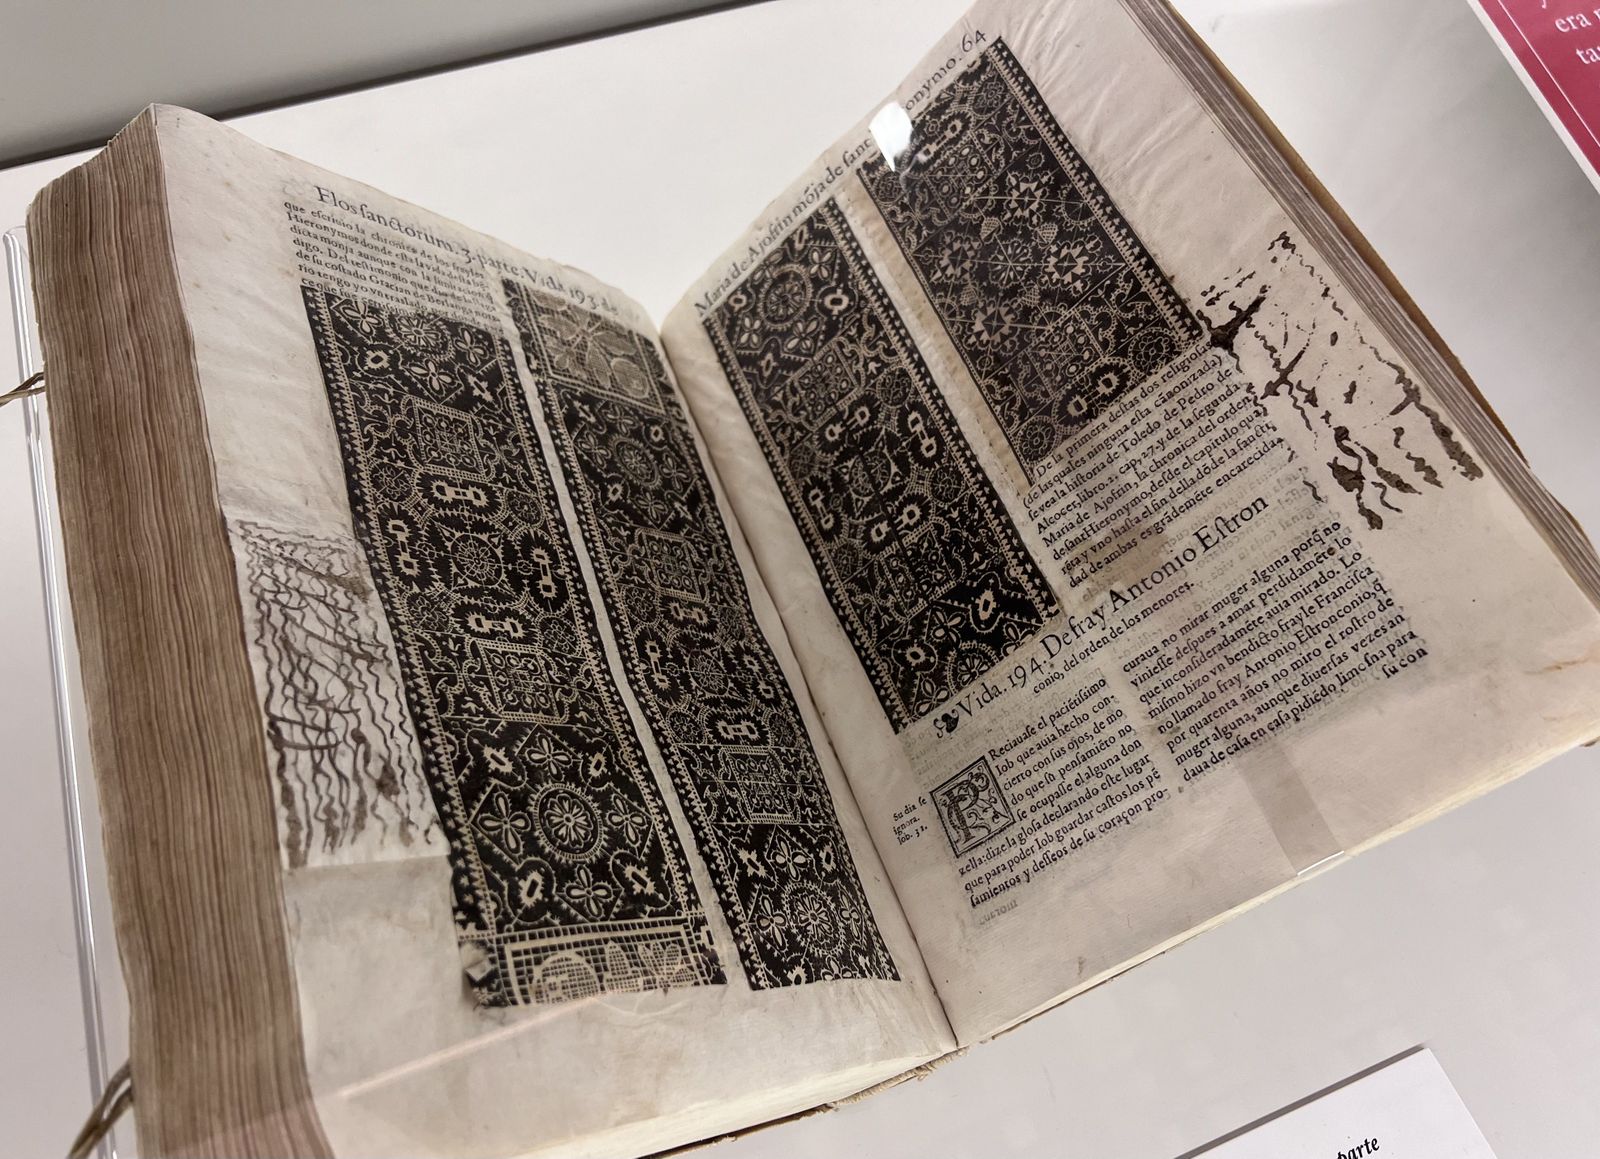 Flos sanctorum.3.parte. Vida 193 de
que escriuio la chronica de los frayles
Hieronymos donde esta la vida de la ben-
dicta monja aunque con
digo. Del testimonio que dio de la
de su costado Gracian de Berlanga nota-
rio tengo yo vn traslado
ce que fue
Maria de Ajofrin mōja de sant
onymo. 64
De la primera destas dos religiosas
(de las quales ninguna esta canonizada)
se vea la historia de Toledo de Pedro de
Alcocer, libro. 2. cap. 27. y de la segunda
Maria de Ajofrin, la chronica del orden
de sant Hieronymo, desde el capitulo qua
rēta y vno hasta el fin della dō de la sancti,
dad de ambas es grādemēte encarecida.
Vida. 194. De fray Antonio Estron
conio, del orden de los menores.
Su dia se
ignora.
Iob. 31.
PReciauase el paciētissimo
Iob que auia hecho con-
cierto con sus ojos, de mo
do que ni pensamiēto no
se ocupasse el alguna don
zella: dize la glosa declarando este lugar
que para poder Iob guardar castos los pē
samientos y desseos de su coraçon pro-
curaua no mirar muger alguna porq̄ no
viniesse despues a amar perdidamēte lo
que inconsideradamēte auia mirado. Lo
mismo hizo vn bendicto frayle Francisca
no llamado fray Antonio Estronconio, q̄
por quarenta años no miro el rostro de
muger alguna, aunque diuersas vezes an
daua de casa en casa pidiēdo limosna para
su con
era
ta
parte